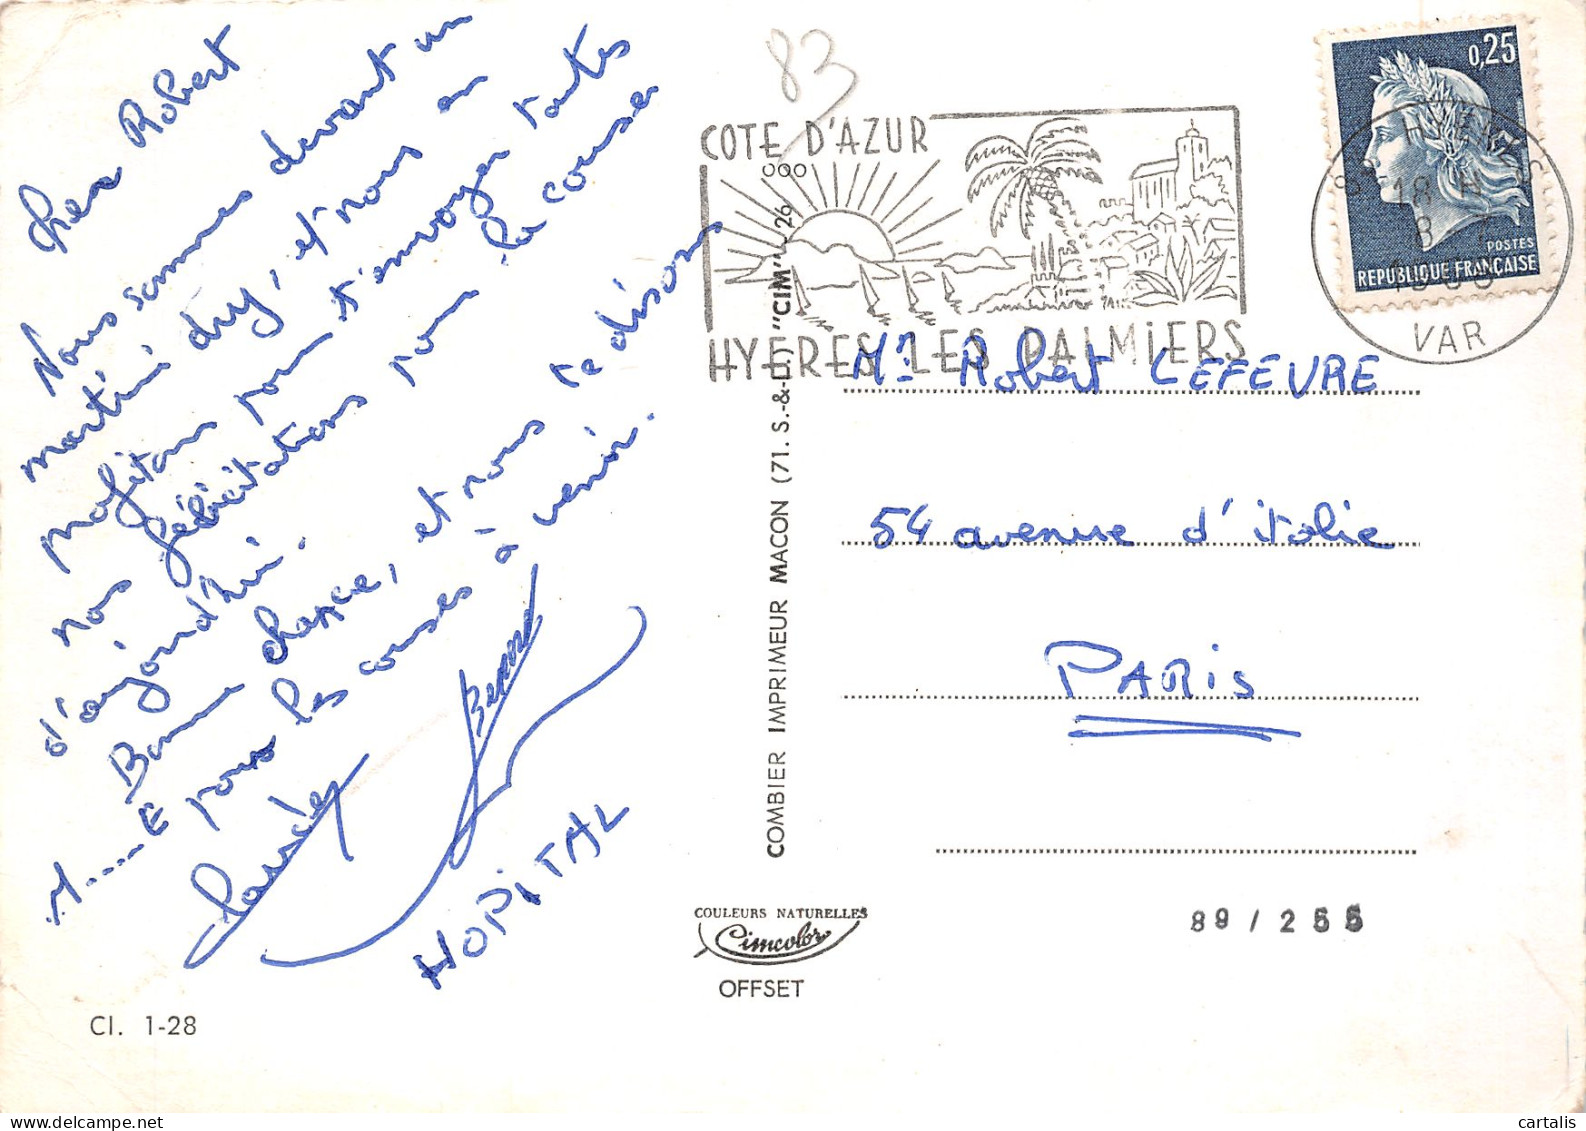 Cher Robert
Nous sommes devant un
martini dry, et nous en
profitons pour t'envoyer toutes
nos félicitations pour la course
d'aujourd'hui.
Bonne chasse, et nous te disons
M.....E pour les courses à venir.
Bernard
HOPITAL
Cl. 1-28
83
COTE D'AZUR
HYERES LES PALMIERS
0,25
POSTES
REPUBLIQUE FRANÇAISE
HYERES
18 H
8 7
VAR
COMBIER IMPRIMEUR MACON (71. S.-&-L.) "CIM" 26
Mr Robert LEFEVRE
54 avenue d'italie
PARIS
COULEURS NATURELLES
Cimcolor
OFFSET
89 / 255
cartalis